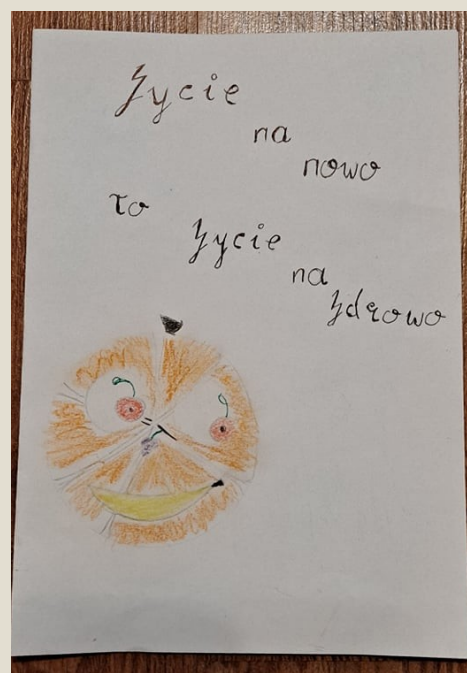 Życie
na
nowo
to
życie
na
zdrowo